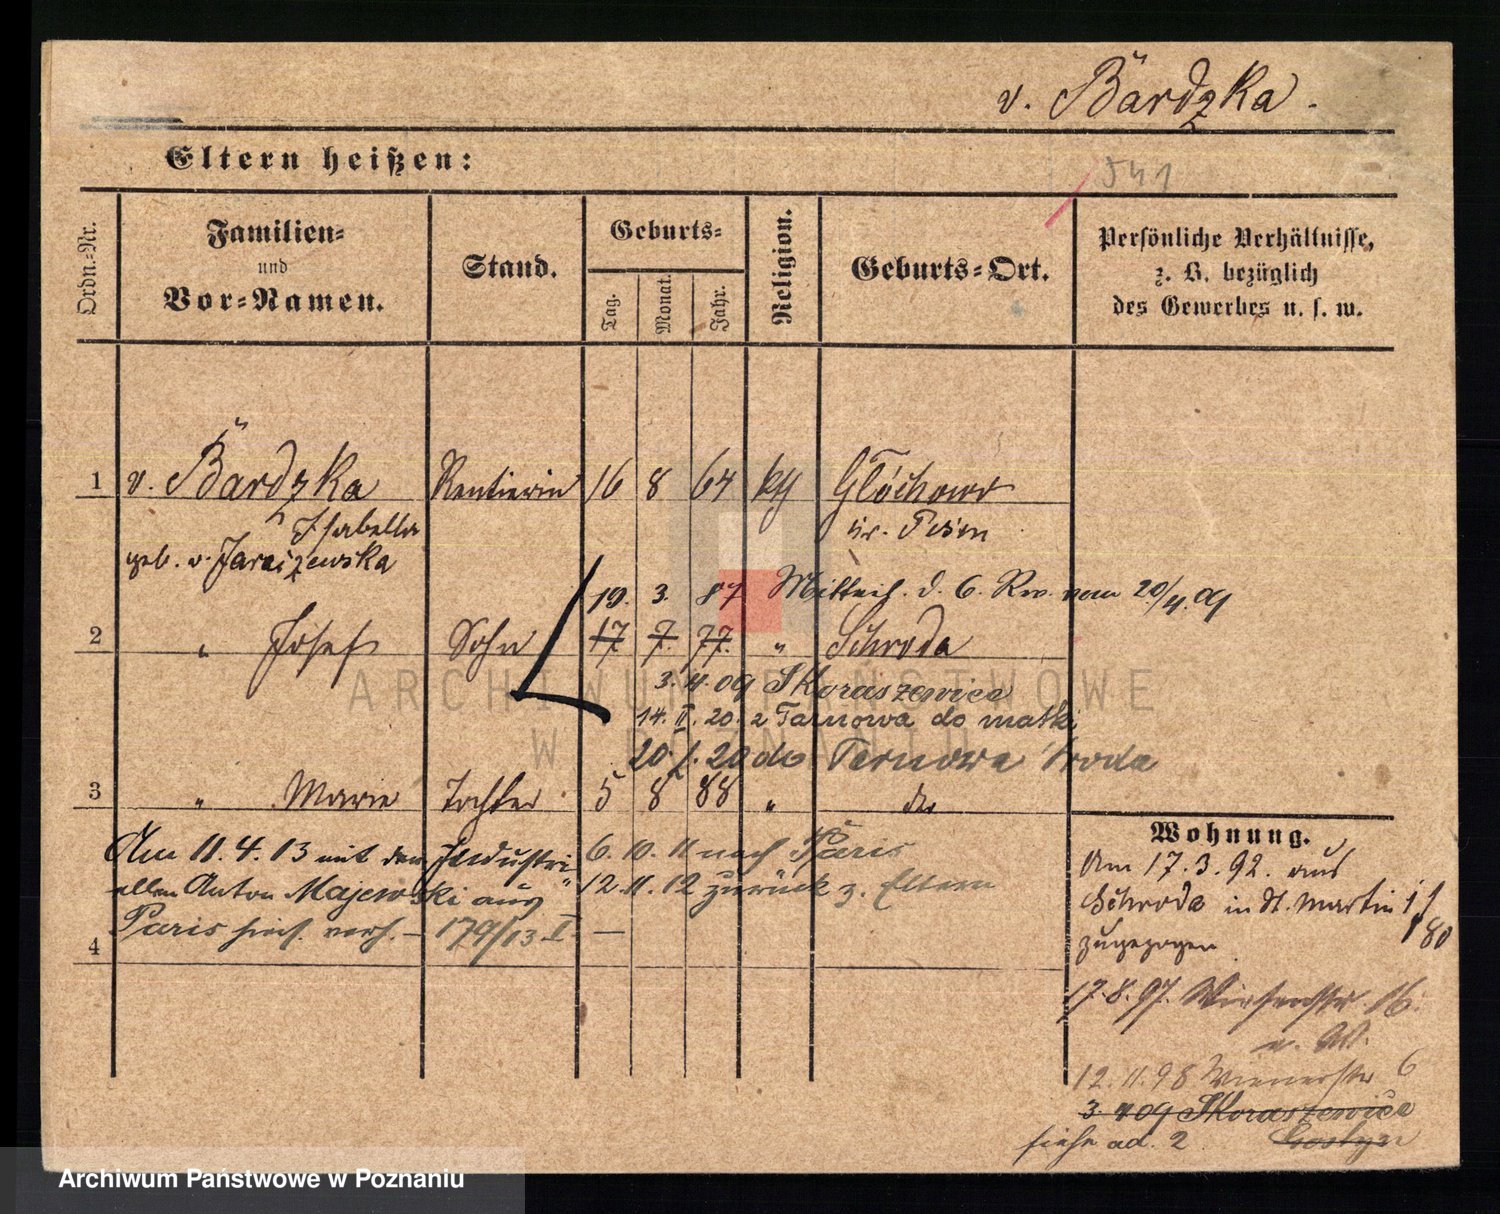 v. Bardzka.
Eltern heißen:
541
Ordn.-Nr.
Familien-
und
Vor-Namen.
Stand.
Geburts-
Tag.
Monat.
Jahr.
Religion.
Geburts-Ort.
Persönliche Verhältnisse,
z. B. bezüglich
des Gewerbes u. s. w.
1 v. Bardzka Rentierin 16 8 64 kth
Isabella
geb. v. Jaraczewska
19. 3. 87 Mittheil. d. 6. Rev. vom 20/4.09
2 " Josef Sohn 17 7. 77. " Schroda
3. 4. 09 Skoraszewice
14. II. 20. z Tarnowa do matki
20. 20 do Tarnowa Sroda
3 " Marie Tochter 5 8 88 " do
Am 11. 4. 13 mit dem Industri-
ellen Anton Majewski aus
Paris hies. verh. – 179/13 II –
6. 10. 11 nach Paris
12. 11. 12 zurück z. Eltern
4
Wohnung.
Am 17. 3. 92. aus
Schroda in St. Martin
80
zugezogen
17. 8. 97. 16.
12. 11. 98 Wienerstr 6
3. 4 09 Skoraszewice
Gostyn
siehe ad. 2
ARCHIWUM PAŃSTWOWE
W POZNANIU
Archiwum Państwowe w Poznaniu